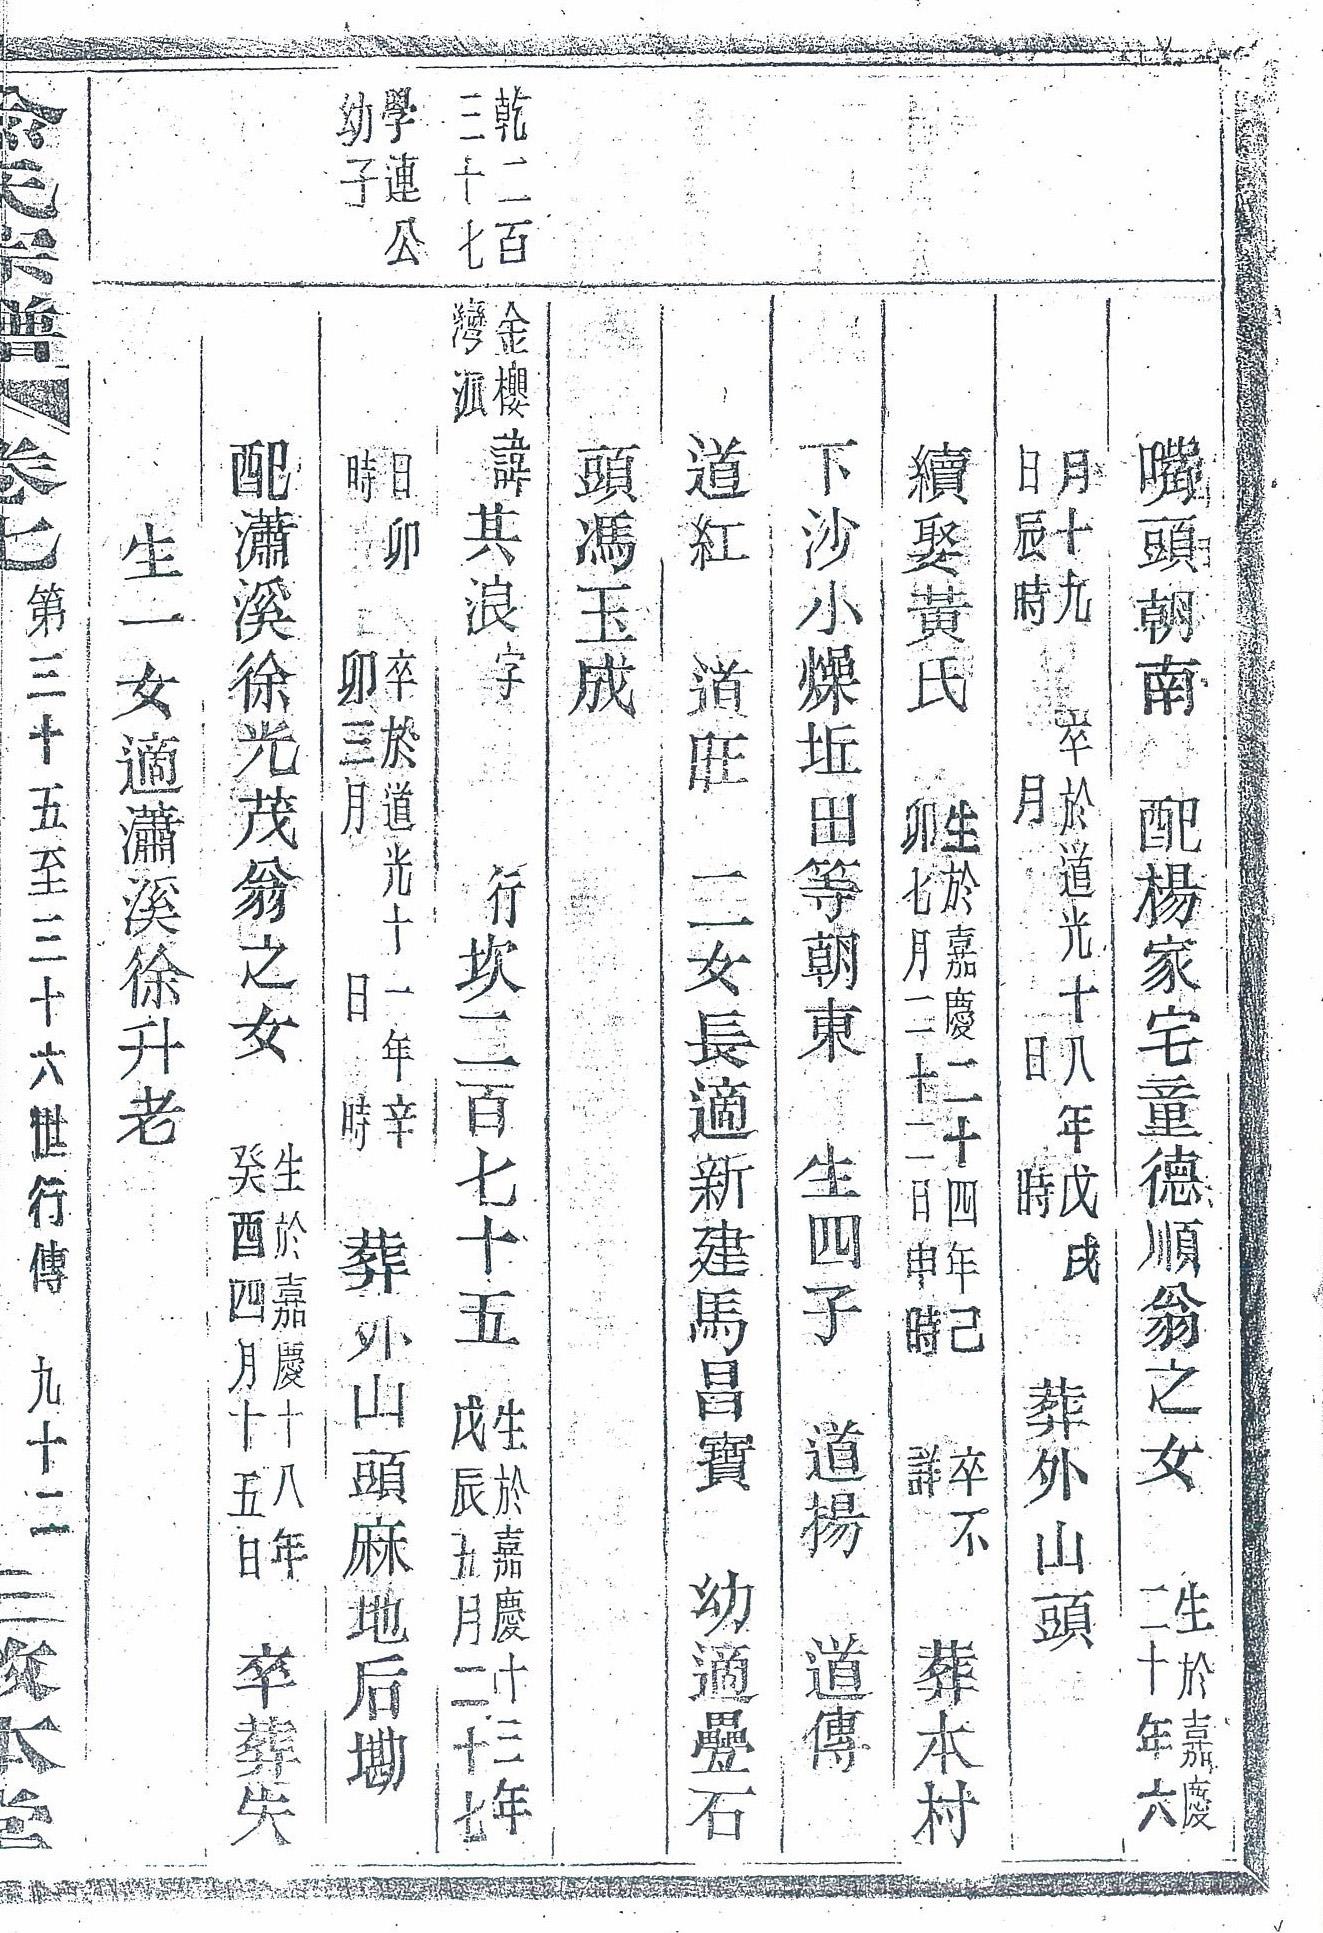 嘴頭朝南　配楊家宅童德順翁之女　生於嘉慶
二十年六
月十九　卒於道光十八年戊戌
日辰時　月　日　時　葬外山頭
續娶黃氏　生於嘉慶二十四年己
卯七月二十二日申時　卒不
詳　葬本村
下沙小燥坵田等朝東　生四子　道揚　道傳
道紅　道旺　二女長適新建馬昌寶　幼適疊石
頭馮玉成
乾二百
三十七
金櫻
灣派
諱其浪字　行坎二百七十五　生於嘉慶十三年
戊辰五月二十七
學連公
幼子
日卯　卒於道光十一年辛
時　卯三月　日　時　葬外山頭麻地后墈
配瀟溪徐光茂翁之女　生於嘉慶十八年
癸酉四月十五日　卒葬失
生一女適瀟溪徐升老
氏宗譜　卷七　第三十五至三十六世行傳　九十二　本堂